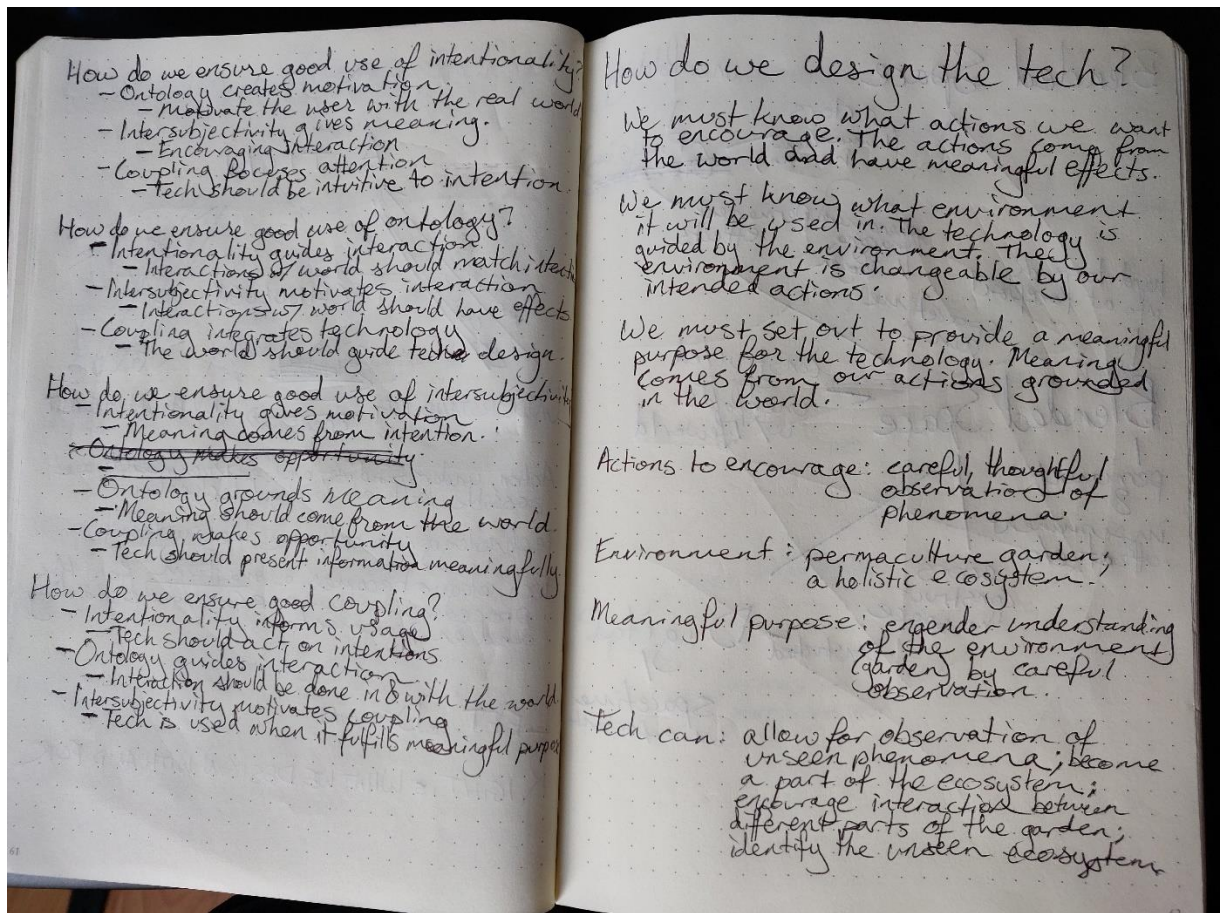 How do we ensure good use of intentionality?
- Ontology creates motivation.
- Motivate the user with the real world
- Intersubjectivity gives meaning.
- Encouraging interaction
- Coupling focuses attention
- Tech should be intuitive to intention.
How do we ensure good use of ontology?
- Intentionality guides interaction.
- Interactions w/ world should match intenti
- Intersubjectivity motivates interaction
- Interactions w/ world should have effects
- Coupling integrates technology
- The world should guide tech design.
How do we ensure good use of intersubjectivit
- Intentionality gives motivation
- Meaning comes from intention.
- Ontology makes opportunity.
- Ontology grounds meaning
- Meaning should come from the world.
- Coupling makes opportunity
- Tech should present information meaningfully.
How do we ensure good coupling?
- Intentionality informs usage
- Tech should act on intentions
- Ontology guides interaction
- Interaction should be done in & with the world.
- Intersubjectivity motivates coupling
- Tech is used when it fulfills meaningful purpose
61
How do we design the tech?
We must know what actions we want
to encourage. The actions come from
the world and have meaningful effects.
We must know what environment
it will be used in. The technology is
guided by the environment. The
environment is changeable by our
intended actions.
We must set out to provide a meaningful
purpose for the technology. Meaning
comes from our actions grounded
in the world.
Actions to encourage: careful, thoughtful
observation of
phenomena.
Environment: permaculture garden;
a holistic ecosystem.
Meaningful purpose: engender understanding
of the environment
(garden) by careful
observation.
Tech can: allow for observation of
unseen phenomena; become
a part of the ecosystem;
encourage interaction between
different parts of the garden;
identify the unseen ecosystem